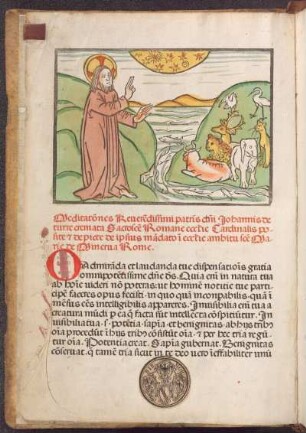 Meditatiões Reuerēdissimi patris dñi Johannis de
turre cremata Sacrosce Romane eccl'ie Cardinalis po
site & depicte de ipsius mādato ī eccl'ie ambitu sce Ma
rie de Minerua Rome.
Admirāda et laudanda tue dispensatiōis gratia
omnipotētissime dñe ds. Qui cm̄ in natura tua
ab hoīe videri nō poteras: vt hominē notitie tue parti
cipē faceres opus fecisti in quo qui incompabilis quā i
mēsus cēs intelligibilis appareres. Inuisibilia em̄ tua a
creatura mūdi p ea q̄ facta sūt intellecta cōspiciūtur. In
uisibilia tua s. potētia. sapiā et benignitas. ab hijs trib'
oīa procedūt i hijs tribus cōsistūt oīa. & per hec tria regū
tur oīa. Potentia creat. Sapiā gubernat. Benignitas
cōseruat. q̄ tamē tria sicut in te deo vero ineffabiliter vnū